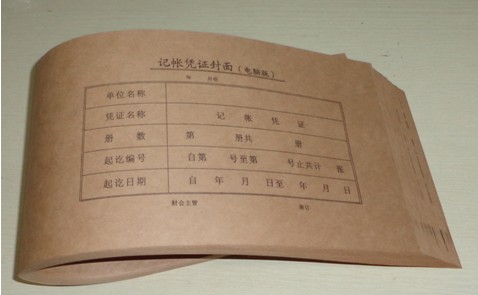 记帐凭证封面（电脑版）
年 月份
单位名称
凭证名称 记 账 凭 证
册 数 第 册共 册
起讫编号 自第 号至第 号止共计 张
起讫日期 自 年 月 日至 年 月 日
财会主管 装订